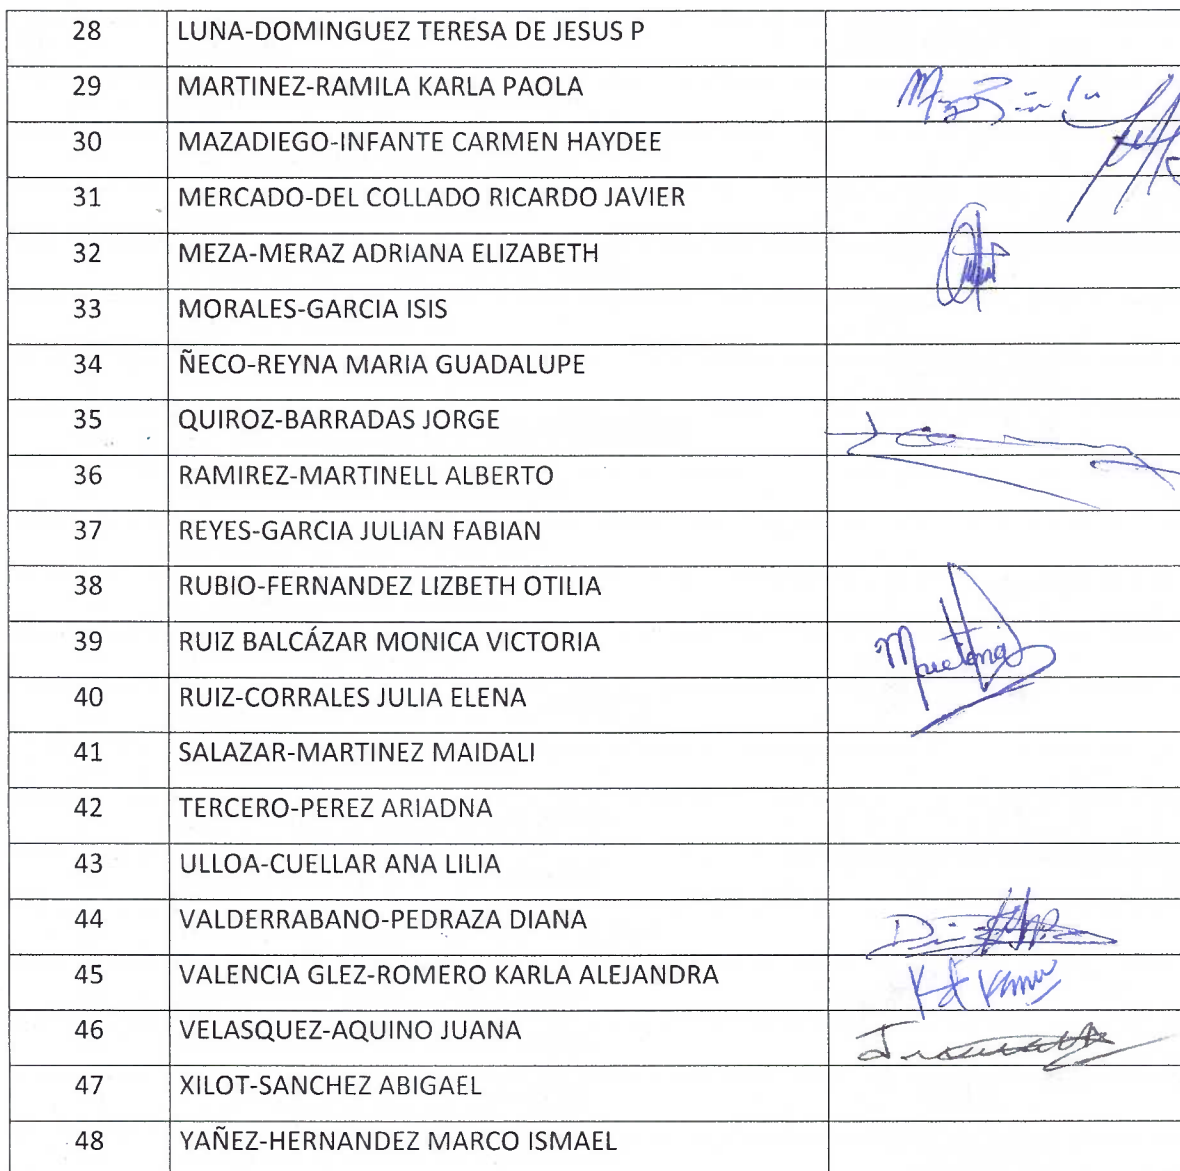 28 LUNA-DOMINGUEZ TERESA DE JESUS P
29 MARTINEZ-RAMILA KARLA PAOLA
30 MAZADIEGO-INFANTE CARMEN HAYDEE
31 MERCADO-DEL COLLADO RICARDO JAVIER
32 MEZA-MERAZ ADRIANA ELIZABETH
33 MORALES-GARCIA ISIS
34 ÑECO-REYNA MARIA GUADALUPE
35 QUIROZ-BARRADAS JORGE
36 RAMIREZ-MARTINELL ALBERTO
37 REYES-GARCIA JULIAN FABIAN
38 RUBIO-FERNANDEZ LIZBETH OTILIA
39 RUIZ BALCÁZAR MONICA VICTORIA
40 RUIZ-CORRALES JULIA ELENA
41 SALAZAR-MARTINEZ MAIDALI
42 TERCERO-PEREZ ARIADNA
43 ULLOA-CUELLAR ANA LILIA
44 VALDERRABANO-PEDRAZA DIANA
45 VALENCIA GLEZ-ROMERO KARLA ALEJANDRA
46 VELASQUEZ-AQUINO JUANA
47 XILOT-SANCHEZ ABIGAEL
48 YAÑEZ-HERNANDEZ MARCO ISMAEL